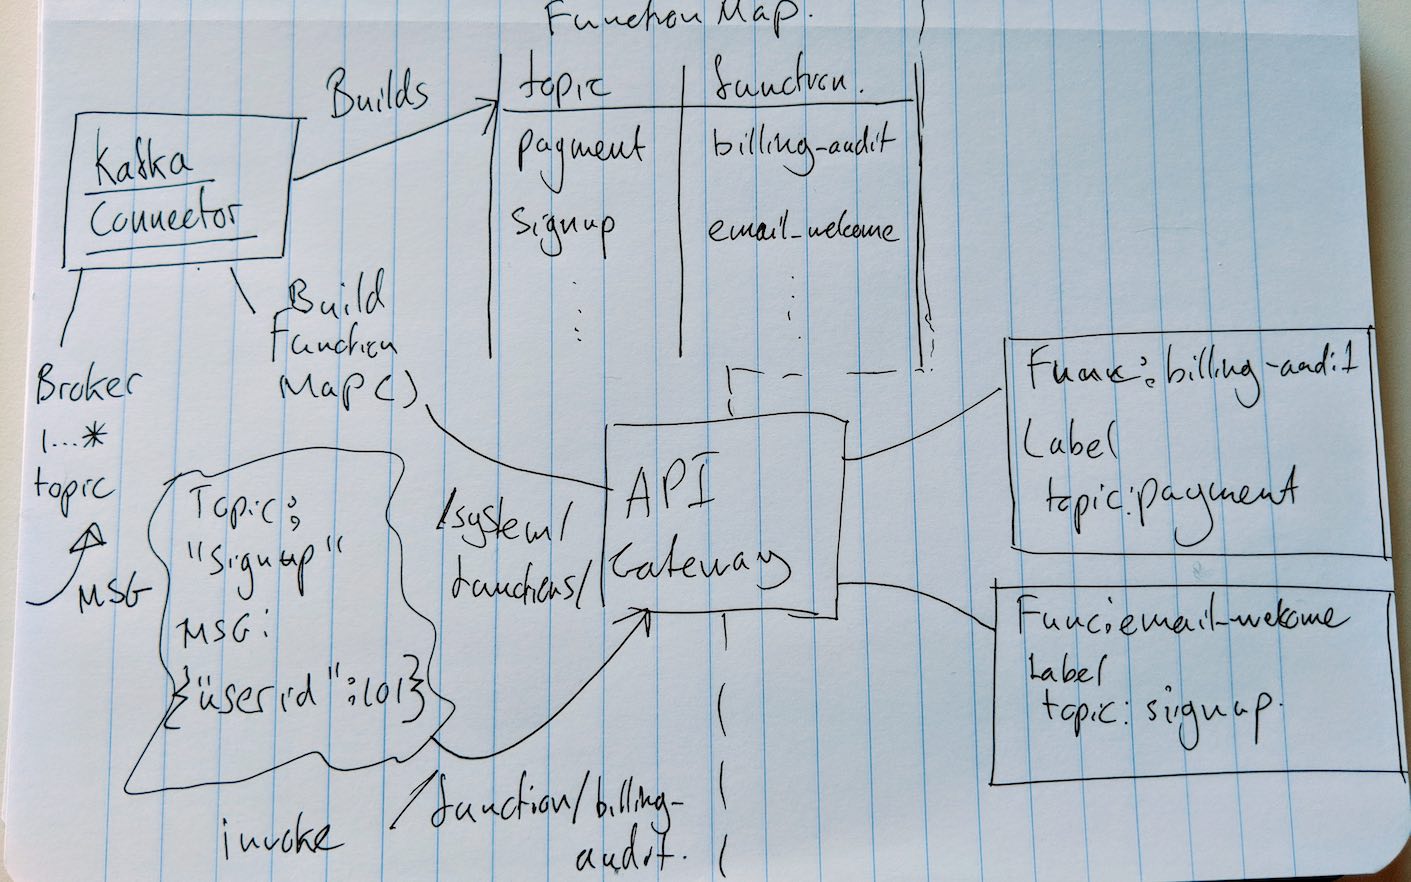 Function Map.
topic
function.
payment
billing-audit
signup
email-welcome
Builds
Kafka
Connector
Build
Function
Map()
Broker
1...*
topic
MSG
Topic:
"signup"
MSG:
{"userid":101}
/system/
functions/
API
Gateway
Func: billing-audit
Label
topic: payment
Func: email-welcome
Label
topic: signup.
invoke
/function/billing-
audit.